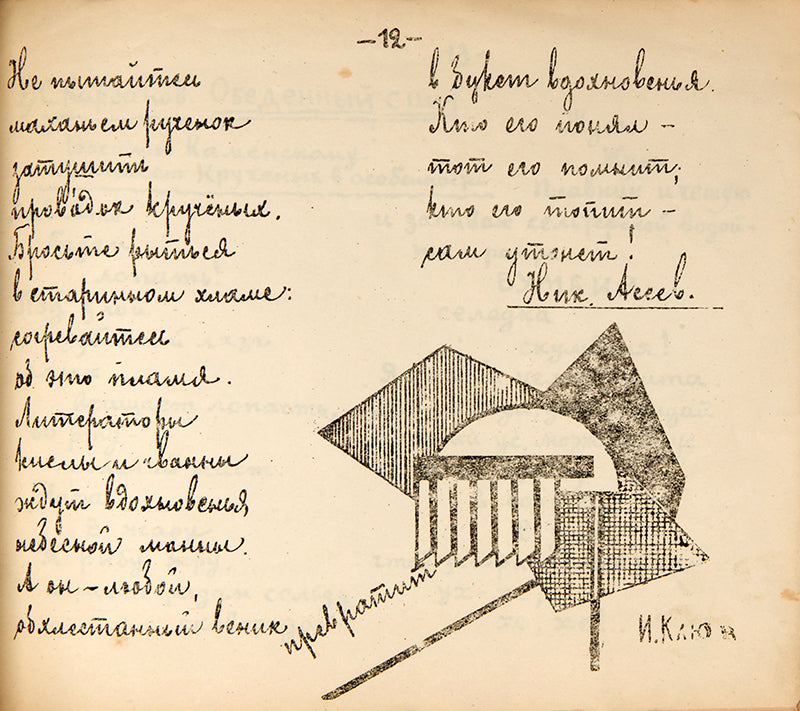 —12—
Не пытайтесь
маханьем ручёнок
затушить
провадок кручёных.
Бросьте рыться
в старинном хламе:
согревайтесь
об это пламя.
Литераторы
кислы и чванны
ждут вдохновенья
небесной манны.
А он — любой,
обхлестанный веник
превратит
в букет вдохновенья.
Кто его понял —
тот его помнит;
кто его топит —
сам утонет!
Ник. Асеев.
И. Клюн